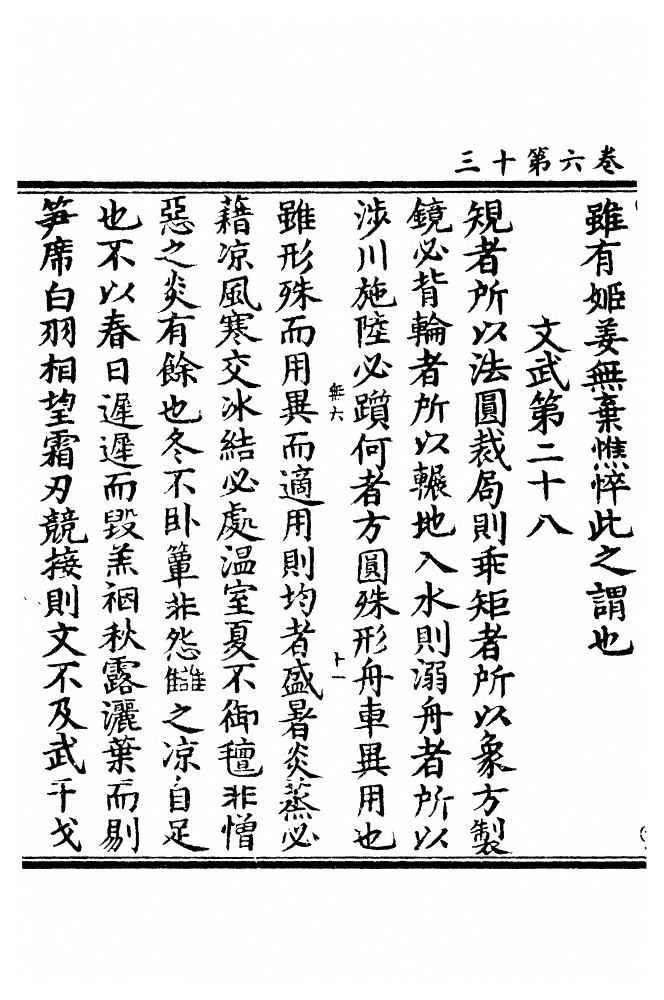 卷六第十三
雖有姬姜無棄憔悴此之謂也
文武第二十八
規者所以法圓裁局則乖矩者所以象方製
鏡必背輪者所以輾地入水則溺舟者所以
涉川施陸必躓何者方圓殊形舟車異用也
無六
十一
雖形殊而用異而適用則均者盛暑炎蒸必
藉凉風寒交冰結必處温室夏不御氊非憎
惡之炎有餘也冬不卧簟非怨讎之凉自足
也不以春日遲遲而毀羔裀秋露灑葉而剔
笋席白羽相望霜刃競接則文不及武干戈